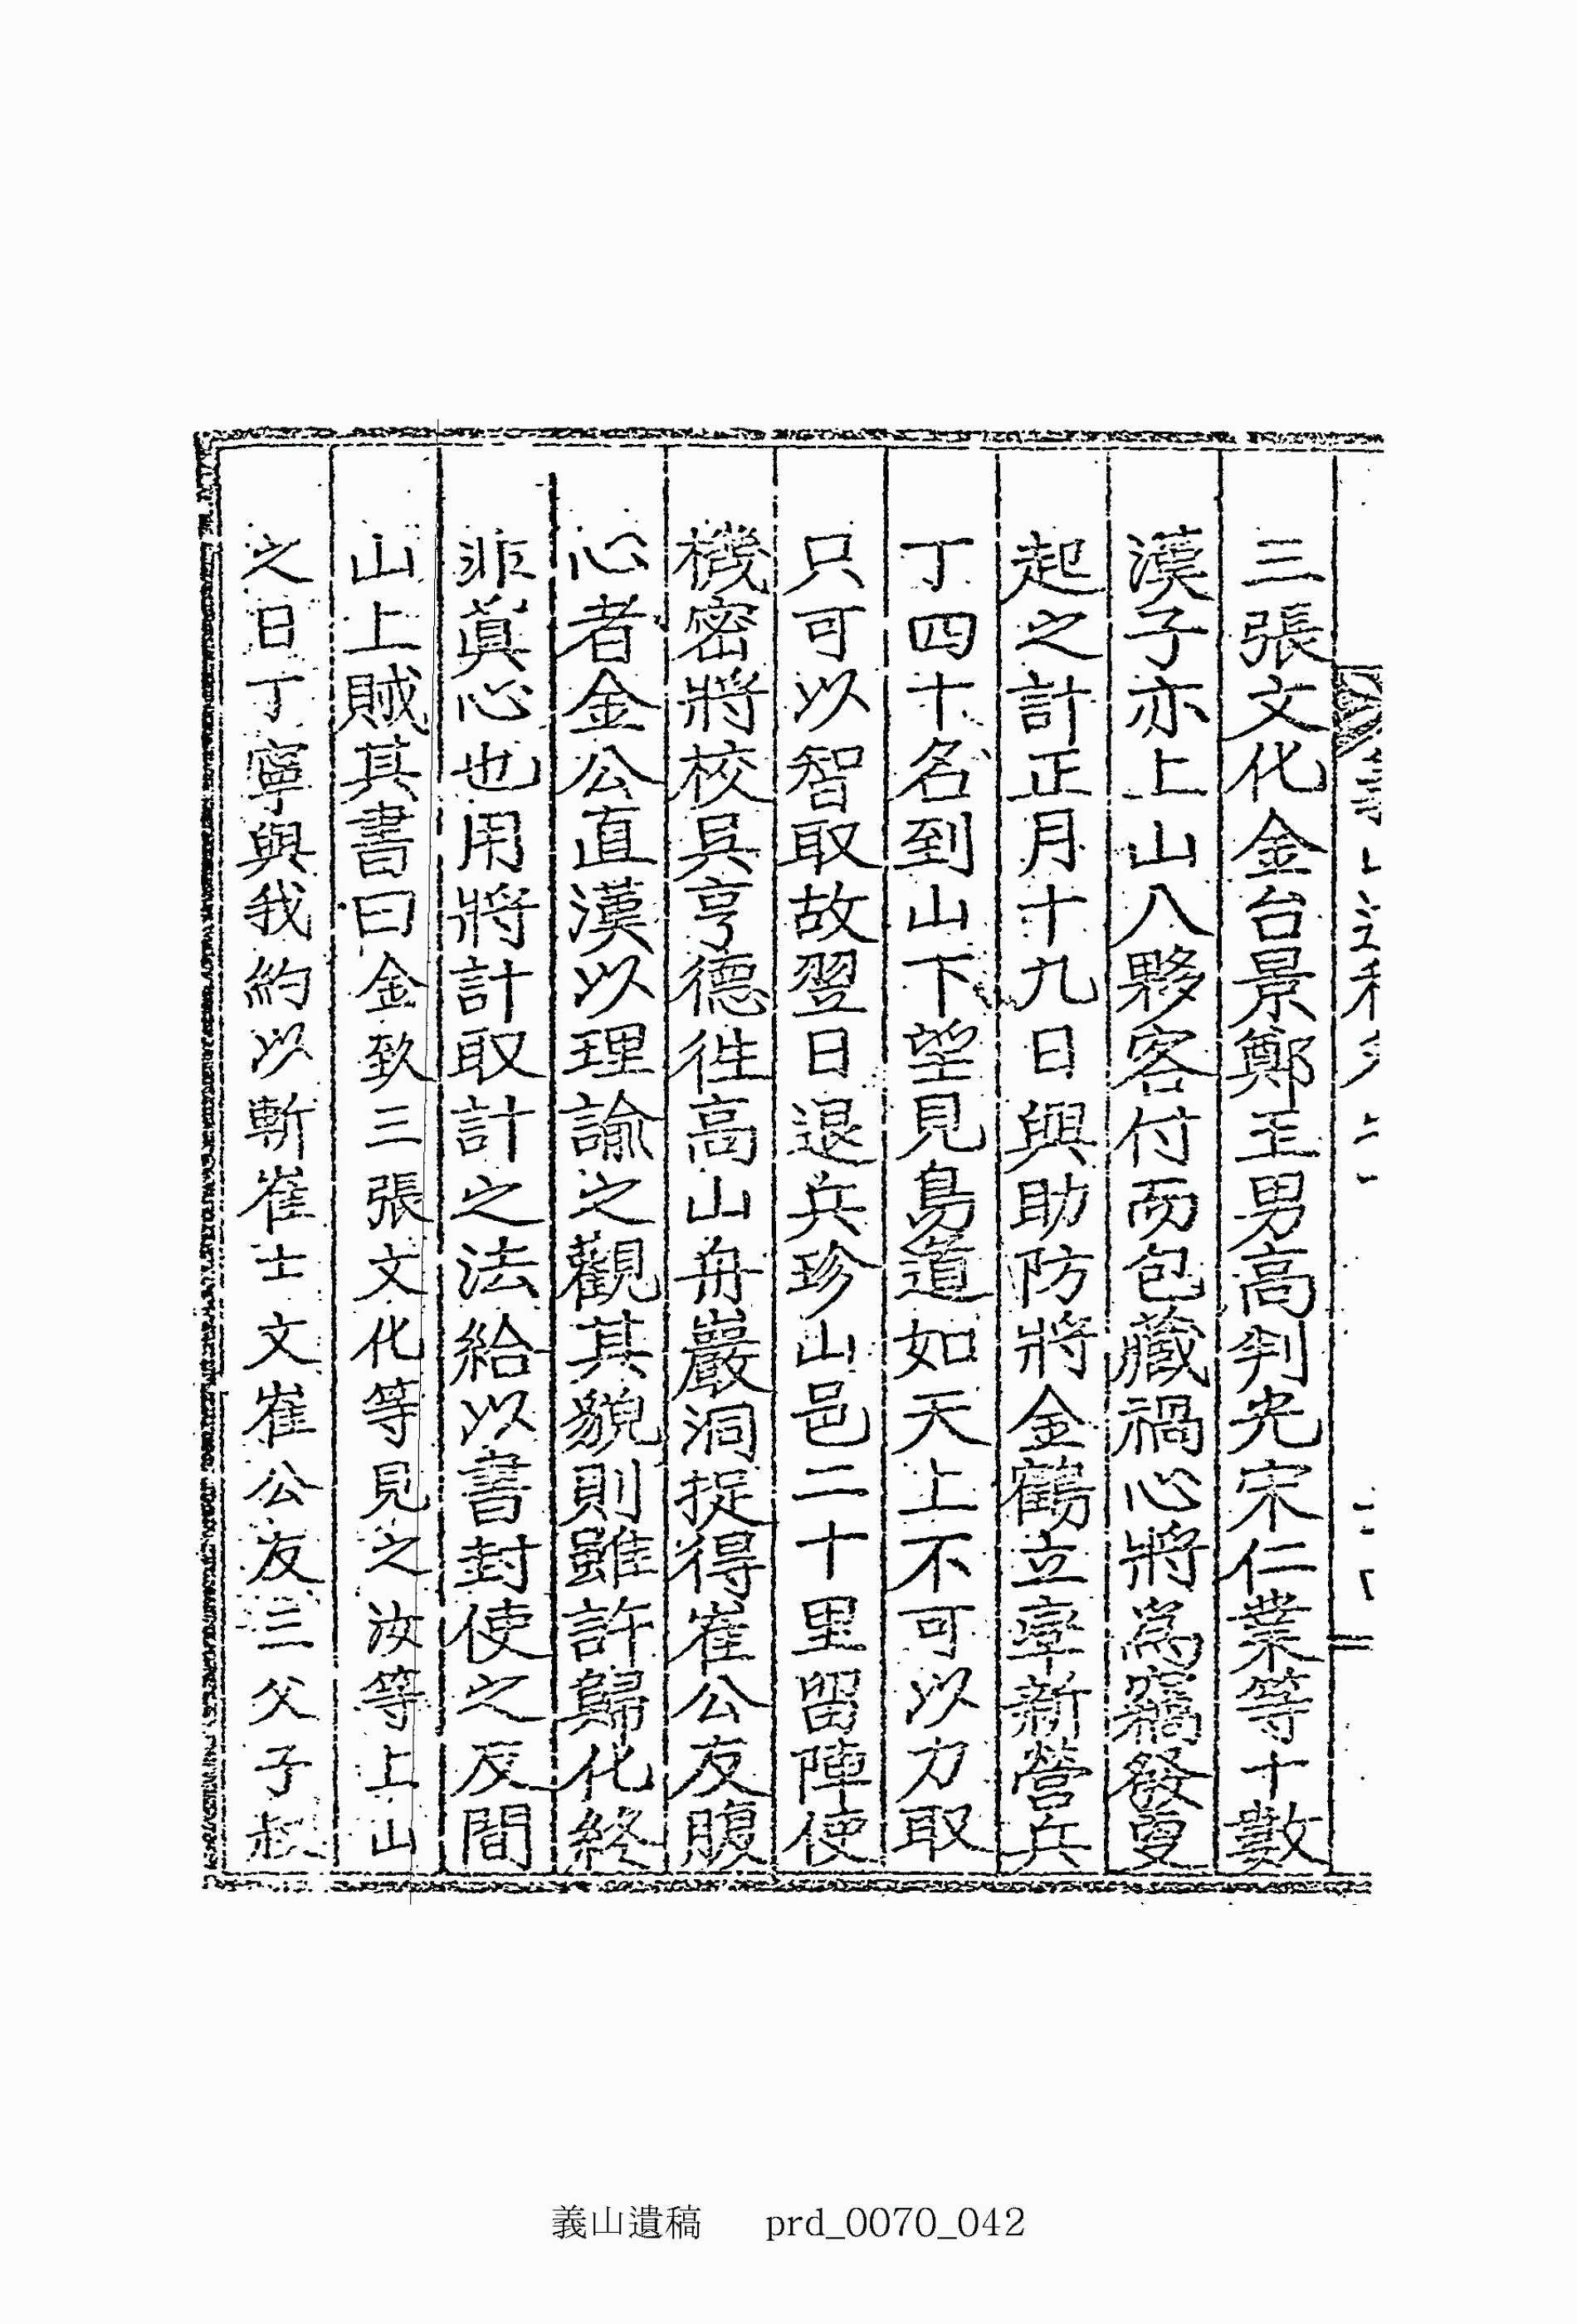 三張文化金台景鄭玉男高判光宋仁業等十數
漢子亦上山八夥客付而包藏禍心將爲竊發更
起之計正月十九日與助防將金鶴立率新營兵
丁四十名到山下望見鳥道如天上不可以力取
只可以智取故翌日退兵珍山邑二十里留陣使
機密將校吳亨德徃高山舟巖洞捉得崔公友腹
心者金公直漢以理諭之觀其貌則雖許歸化終
非眞心也用將計取計之法給以書封使之反間
山上賊其書曰金致三張文化等見之汝等上山
之日丁寧與我約以斬崔士文崔公友三父子叔
義山遺稿 prd_0070_042